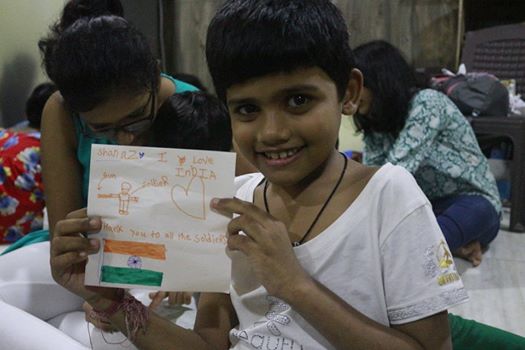 Shanaz I ♥ LOVE
InDIA
Gun
Solider
thank you to all the soldiers